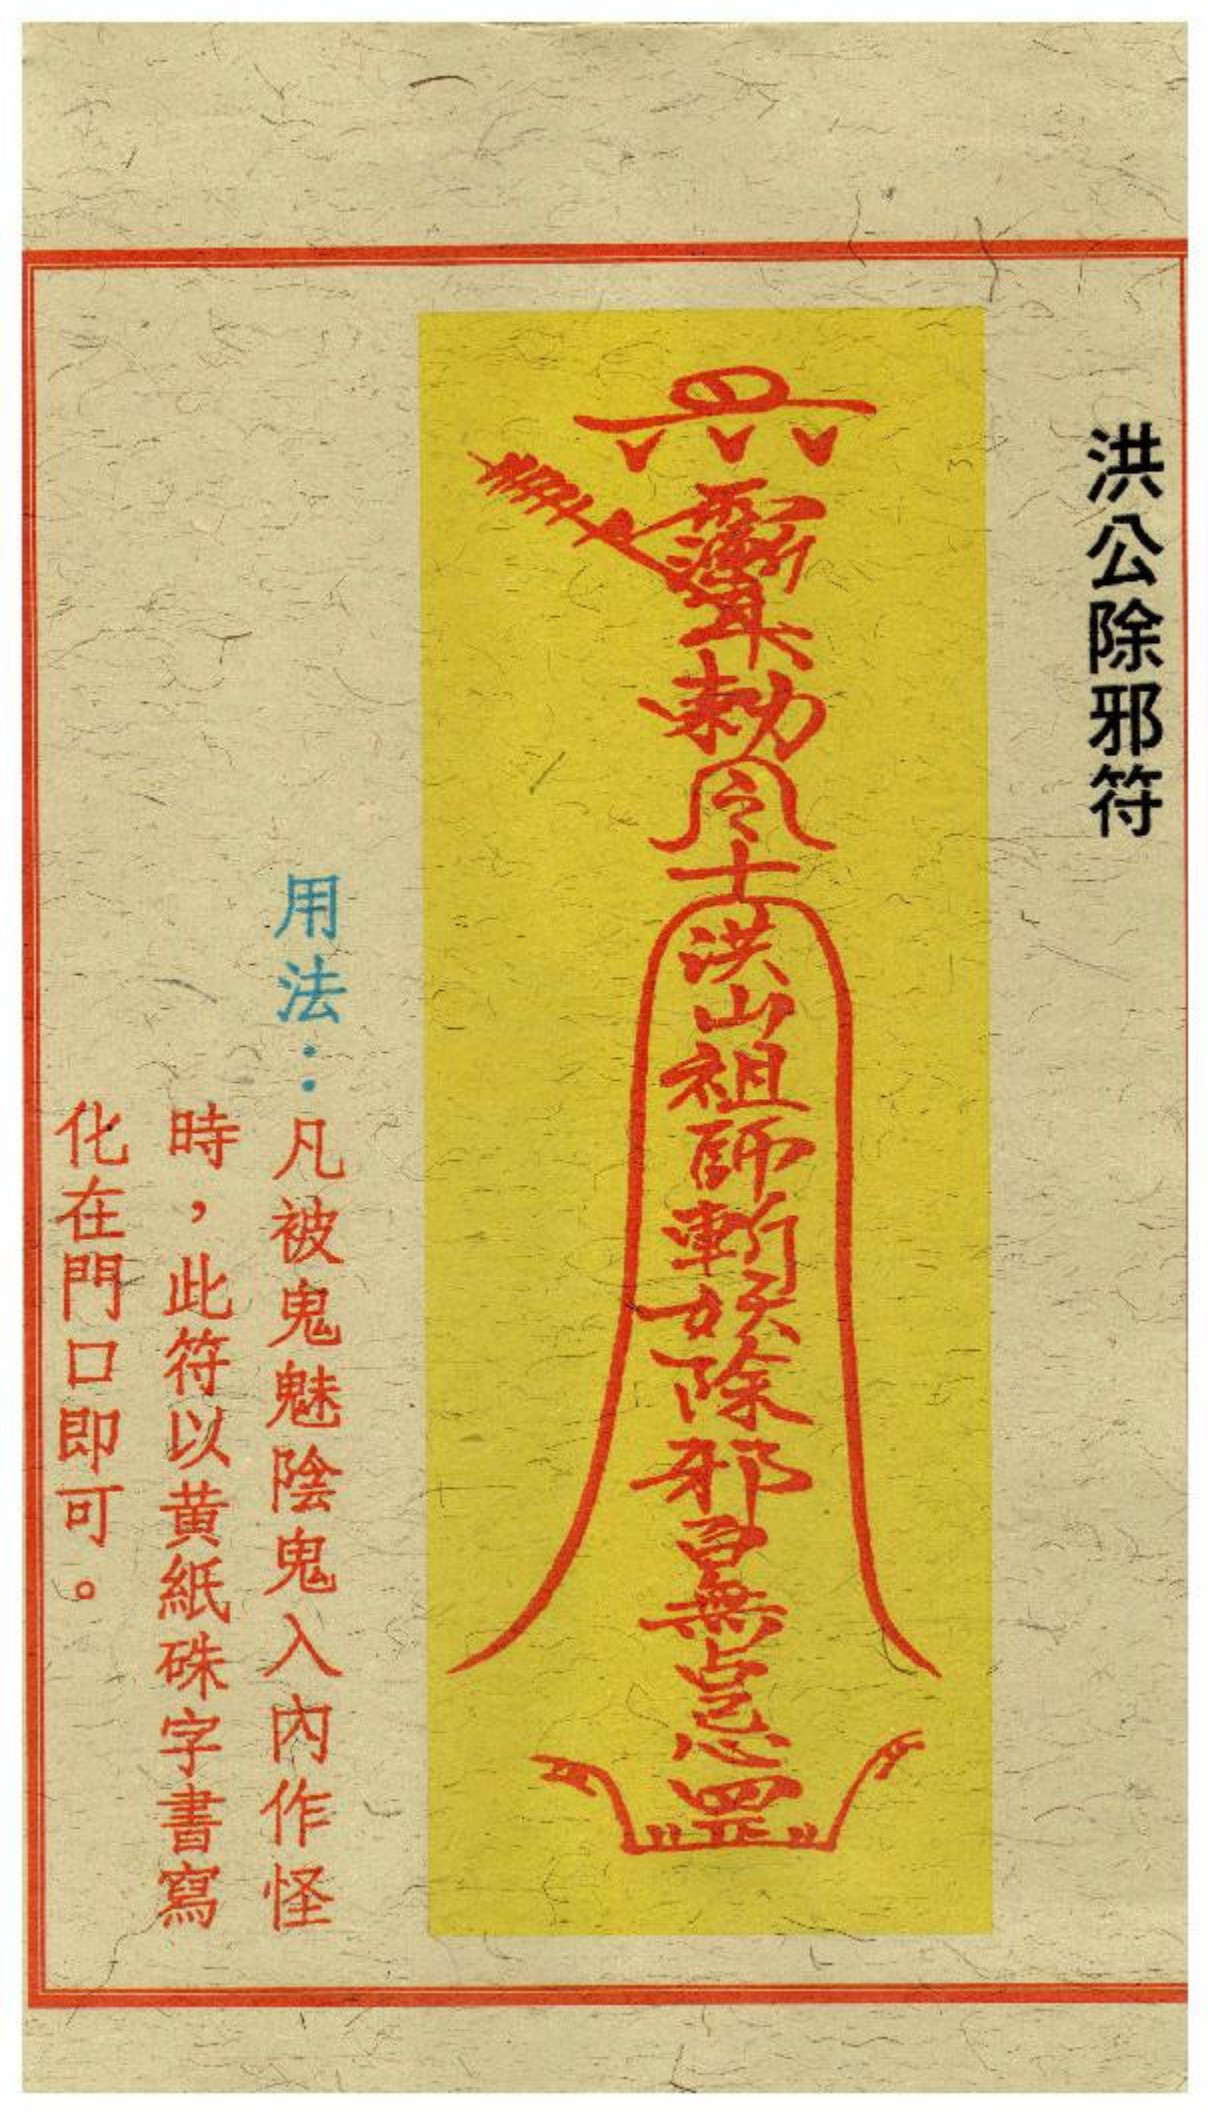 洪公除邪符
勅令
洪山祖師斬妖除邪百無忌罡
用法：凡被鬼魅陰鬼入內作怪
時，此符以黄紙硃字書寫
化在門口即可。